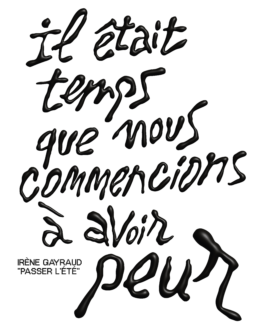 il était
temps
que nous
commencions
à avoir
peur
IRÈNE GAYRAUD
"PASSER L'ÉTÉ"